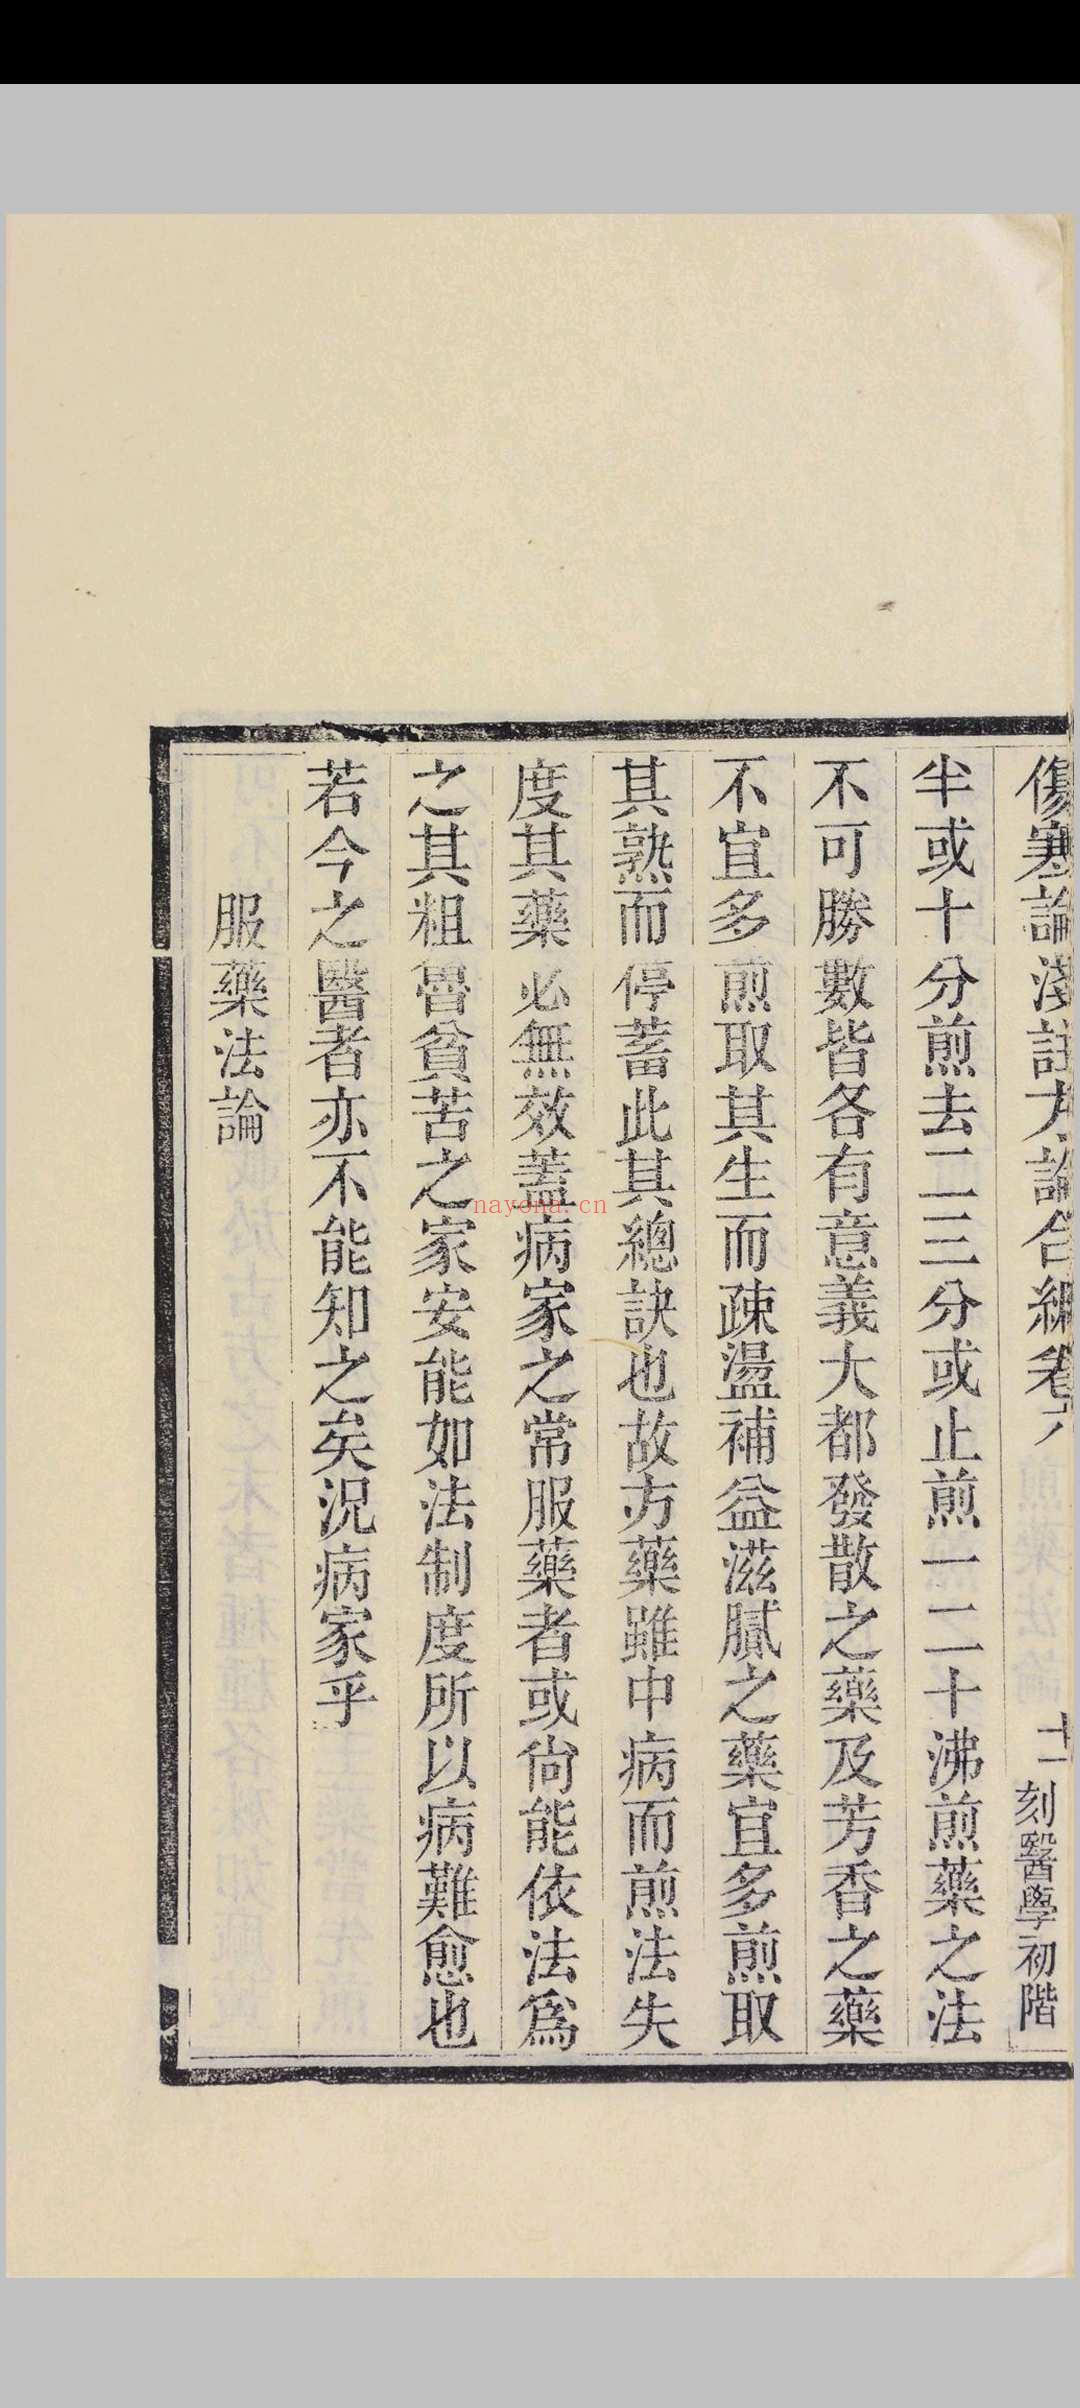 傷寒論淺註方論合編卷八
十一
刻醫學初階
半或十分煎去二三分或止煎一二十沸煎藥之法
不可勝數皆各有意義大都發散之藥及芳香之藥
不宜多煎取其生而疎盪補益滋膩之藥宜多煎取
其熟而停蓄此其總訣也故方藥雖中病而煎法失
度其藥必無效蓋病家之常服藥者或尚能依法爲
之其粗魯貧苦之家安能如法制度所以病難愈也
若今之醫者亦不能知之矣況病家乎
服藥法論
nayona.cn